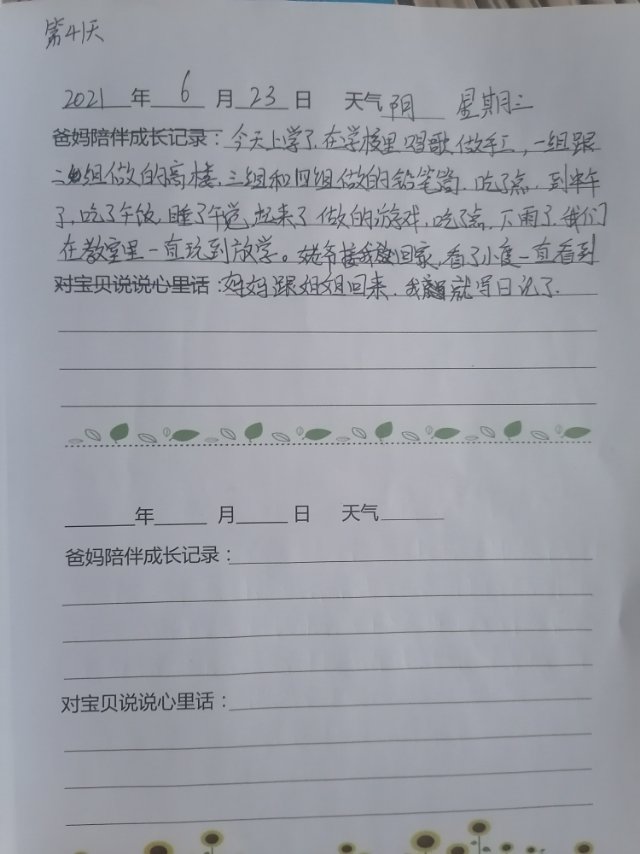 第41天
2021年6月23日 天气阴 星期三
爸妈陪伴成长记录：今天上学了，在学校里唱歌做手工，一组跟
二组做的高楼，三组和四组做的铅笔筒，吃了点，到中午
了，吃了午饭，睡了午觉，起来了做的游戏，吃了点，下雨了，我们
在教室里一直玩到放学。姥爷接我回家，看了小度一直看到
对宝贝说说心里话：妈妈跟姐姐回来，我就写日记了.
年 月 日 天气
爸妈陪伴成长记录：
对宝贝说说心里话：